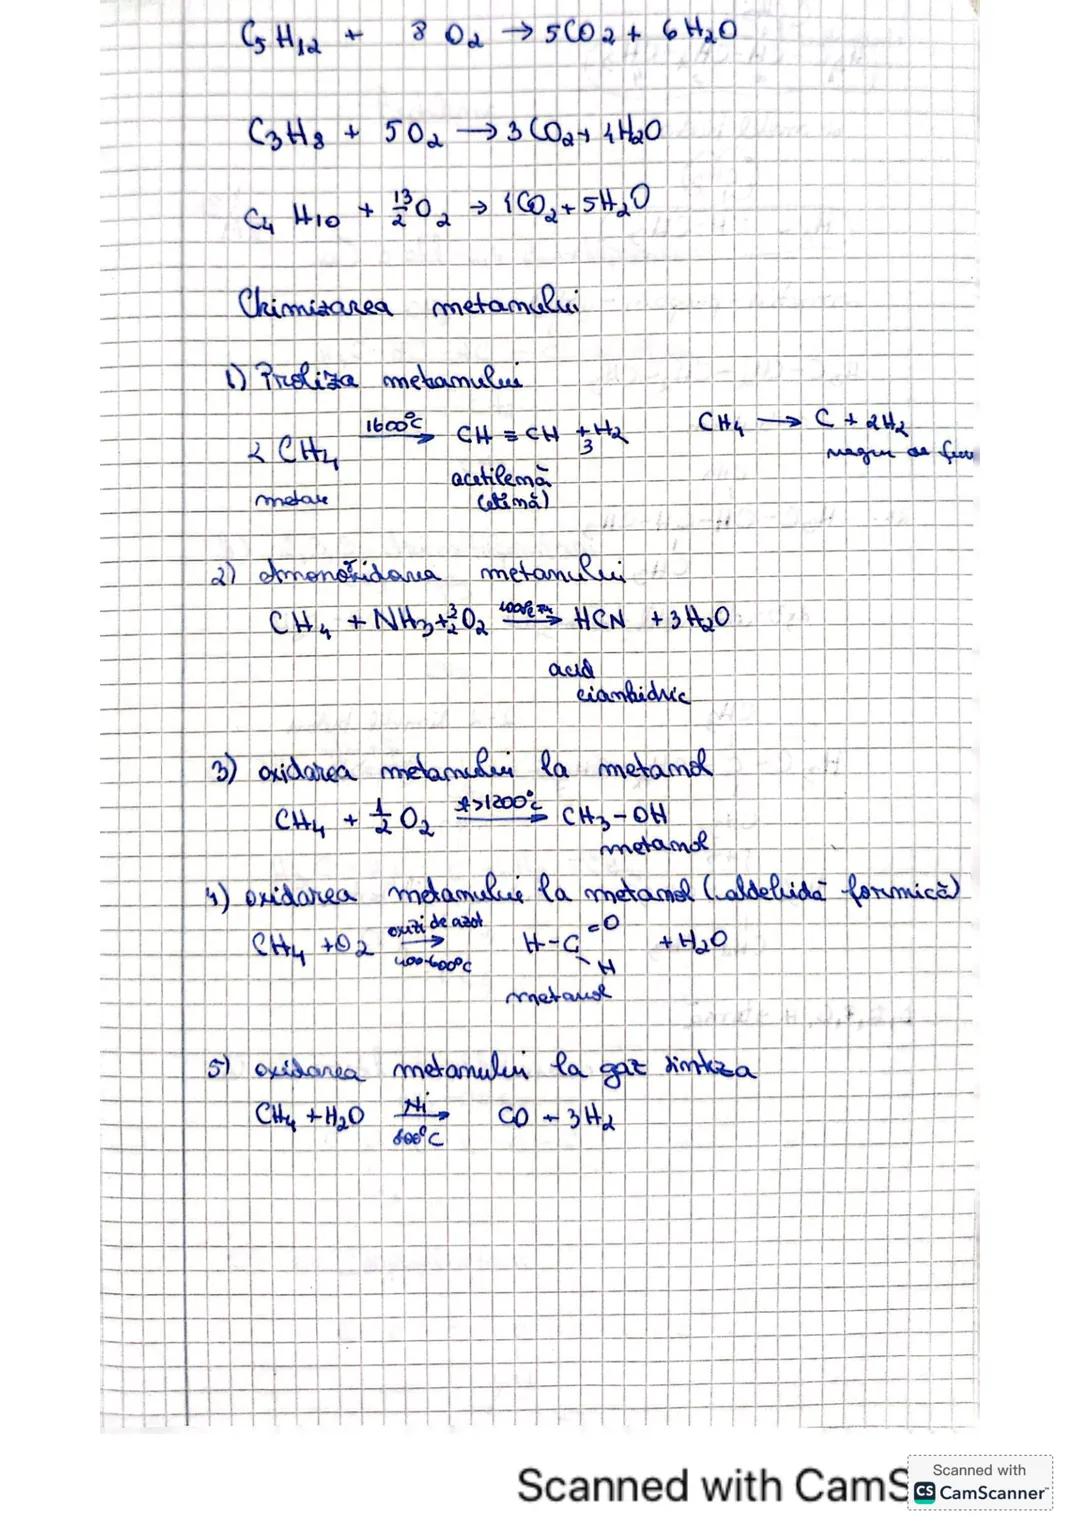 C5H12 + 8 O2 → 5CO2 + 6H2O
C3H8 + 5O2 → 3CO2 + 4H2O
C4H10 + 13/2 O2 → 4CO2 + 5H2O
Chimizarea metanului
1) Piroliza metanului
2 CH4 1600°C → CH ≡ CH + 3H2 CH4 → C + 2H2
metan acetilenă negru de fum
(etină)
2) Amonoxidarea metanului
CH4 + NH3 + 3/2 O2 1000°C Pt → HCN + 3H2O
acid
cianhidric
3) oxidarea metanului la metanol
CH4 + 1/2 O2 t>1200°C → CH3-OH
metanol
4) oxidarea metanului la metanol (aldehidă formică)
CH4 + O2 oxizi de azot → 400-600°C H-C =O -H + H2O
metanol
5) oxidarea metanului la gaz sinteza
CH4 + H2O Ni → 800°C CO + 3H2
Scanned with CamS
Scanned with
CS CamScanner